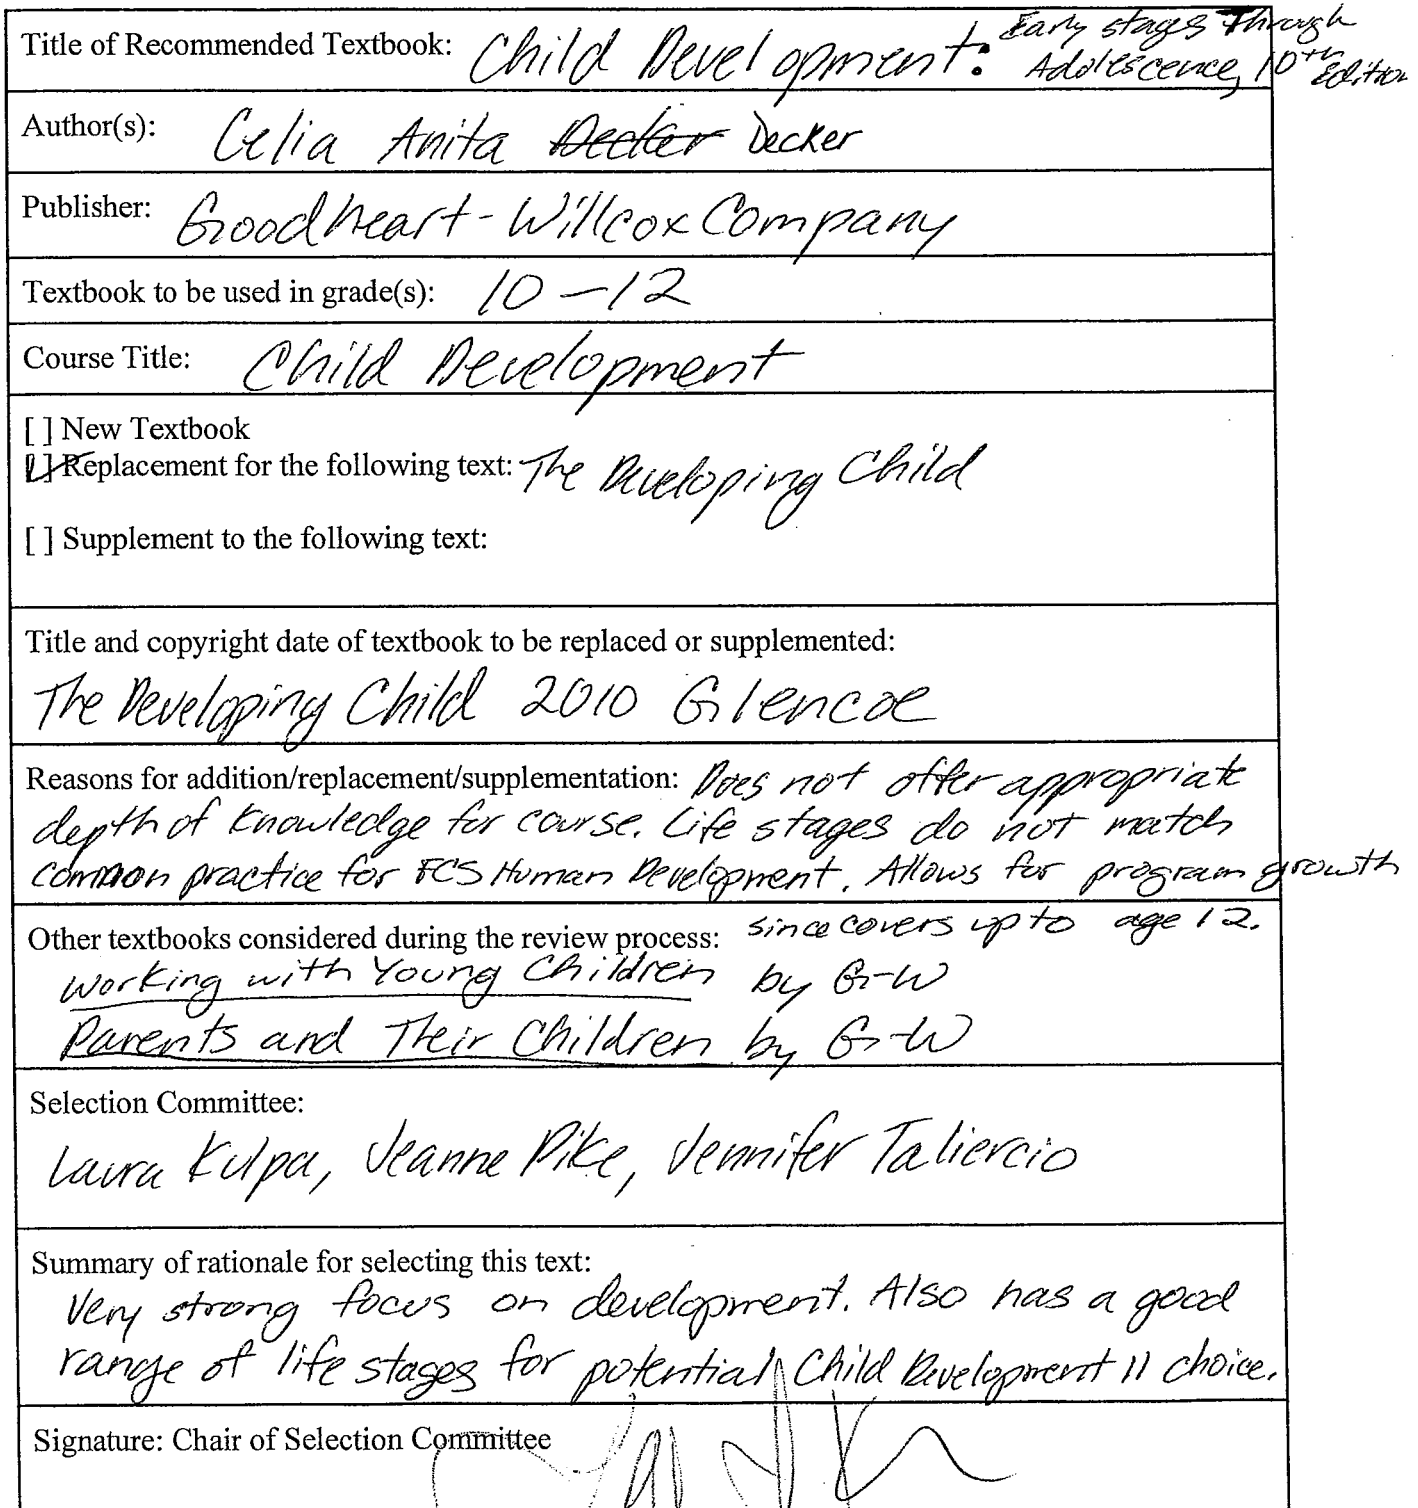 Title of Recommended Textbook: Child Development: Early stages Through
Adolescence, 10th Edition
Author(s): Celia Anita Decker Decker
Publisher: Goodheart-Willcox Company
Textbook to be used in grade(s): 10-12
Course Title: Child Development
[ ] New Textbook
[✓] Replacement for the following text: The Developing Child
[ ] Supplement to the following text:
Title and copyright date of textbook to be replaced or supplemented:
The Developing Child 2010 Glencoe
Reasons for addition/replacement/supplementation: Does not offer appropriate
depth of knowledge for course. Life stages do not match
common practice for FCS Human Development. Allows for program growth
since covers up to age 12.
Other textbooks considered during the review process:
Working with Young Children by G-W
Parents and Their Children by G-W
Selection Committee:
Laura Kulpa, Jeanne Pike, Jennifer Taliercio
Summary of rationale for selecting this text:
Very strong focus on development. Also has a good
range of life stages for potential Child Development II choice.
Signature: Chair of Selection Committee